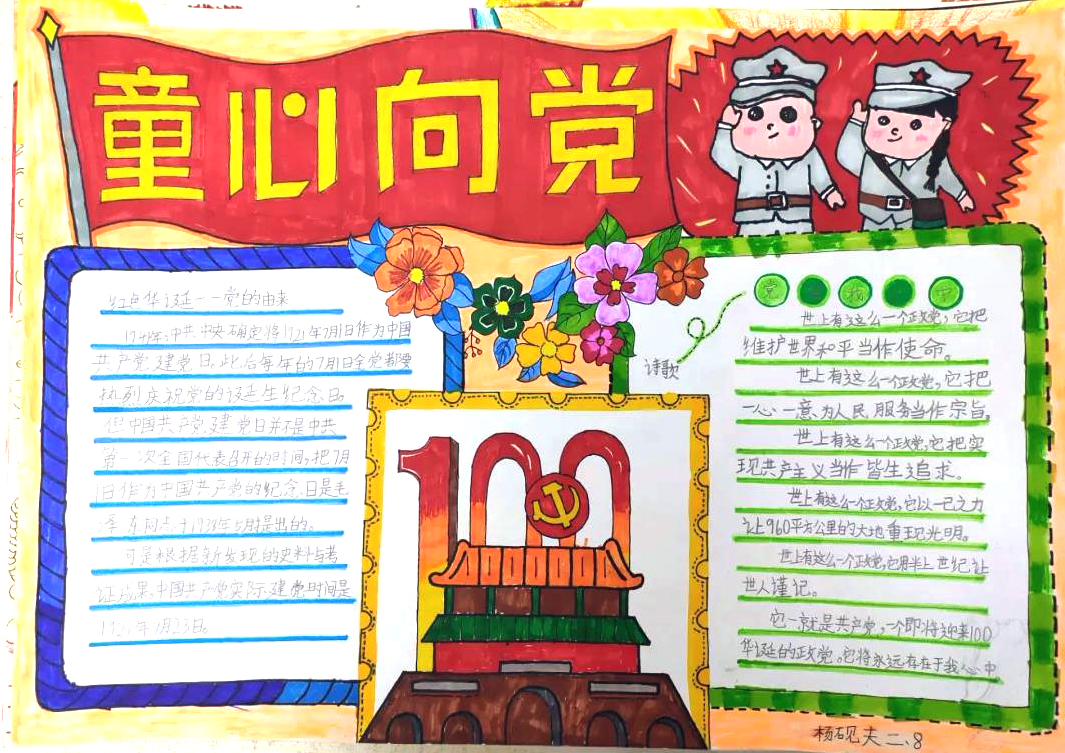 童心向党
红色华诞——党的由来
1941年,中共中央确定将1921年7月1日作为中国
共产党建党日,此后每年的7月1日全党都要
热烈庆祝党的诞生纪念日。
但中国共产党建党日并不是中共
第一次全国代表召开的时间,把7月
1日作为中国共产党的纪念日是毛
泽东同志于1938年5月提出的。
可是根据新发现的史料与考
证成果,中国共产党实际建党时间是
1921年7月23日。
100
诗歌
党 我 中
世上有这么一个政党,它把
维护世界和平当作使命。
世上有这么一个政党,它把
一心一意为人民服务当作宗旨。
世上有这么一个政党,它把实
现共产主义当作皆生追求。
世上有这么一个政党,它以一己之力
让960平方公里的大地重现光明。
世上有这么一个政党,它用半上世纪让
世人谨记。
它一就是共产党,一个即将迎来100
华诞的政党。它将永远存在于我心中
杨砚夫 二、8